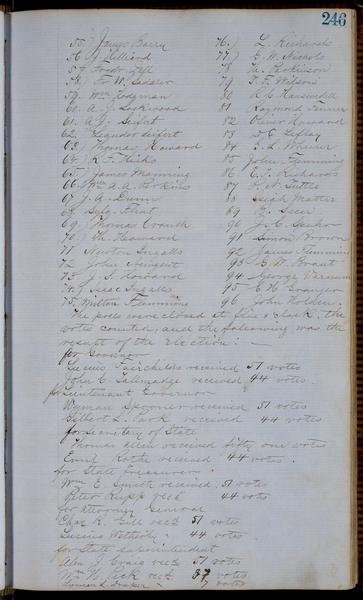 246
55. James Barry
56 J. Hilliard
58) Fr. W. Seidler
59. Wm Hodgman
60. A. J. Lockwood
61. A. J. Seifert
62. Leander Seifert
63) Thomas Howard
64) R. F. Hicks
65) James Manning
66 Wm A. A. Perkins
67 J. A. Dunn
68 Geo. Flint
69) Thomas Crouth
70) Th. Heaward
71 Newton Ingalls
72 John
73 J. S. Rowland
74) Isaac Ingalls
75. Milton Flemming
76.) L. Richards
77.) E. W. Nichols
78 W. Parkinson
79 T. F. Wilson
80 R. S.
81 Raymond Tanner
82 Oliver Howard
83 D. C.
84 G. L. Wheeler
85 John Flemming
86 C. J. Richards
87 P. N. Tuttle
88
89
90 J. C.
91 Simon Brown
92 James Flemming
93 E. W. Brown
94 George Varnum
95 E. W. Granger
96 John Holden.
The polls were closed at five o clock, the
votes counted, and the following was the
result of the Election: —
for Governor
Lucius Fairchilds received 51 votes
John C Talmadge received 44 votes.
for Lieutenant Governor
Wyman Spooner received 51 votes
Gilbert L. Park received 44 votes
for Secretary of State
Thomas Allen received fifty one votes
Emil Rothe received 44 votes.
for State Treasurer
Wm E. Smith received 51 votes
Peter Rupp recd 44 votes
for Attorney General
Chas R. Gill recd 51 votes
44 votes
for State Superintendent
Alex. J. Craig recd 51 votes
Wm H. Peck recd 37 votes
Lyman C. Draper " 7 votes